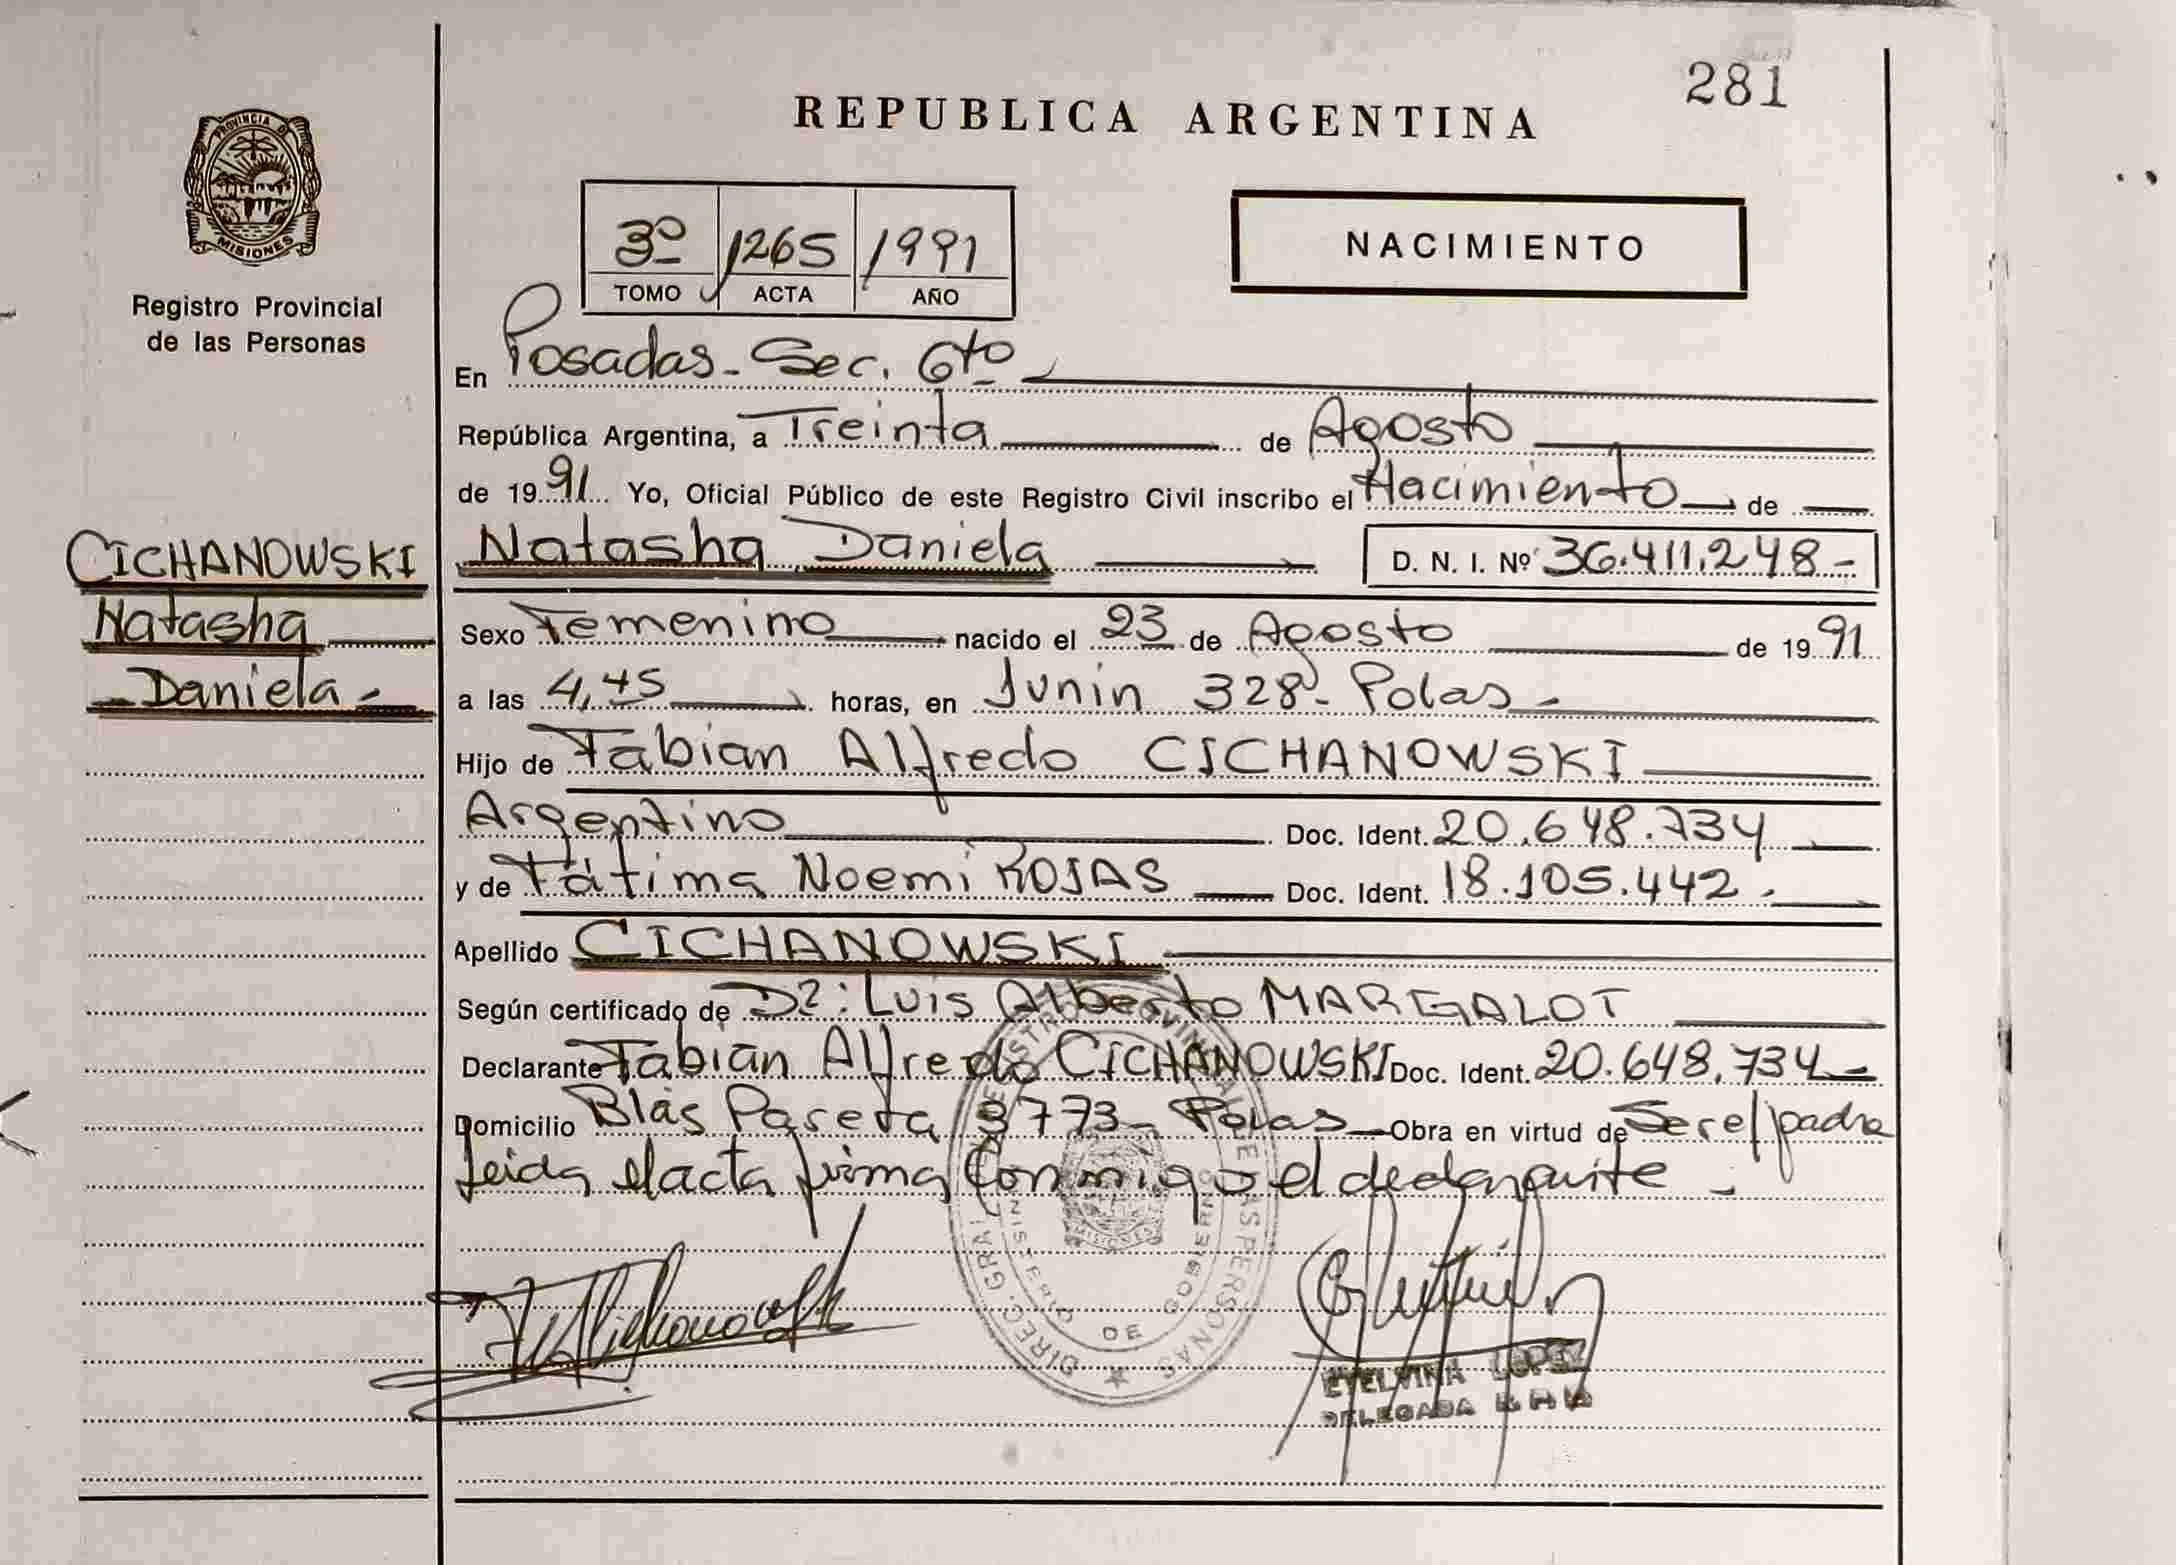 281
REPUBLICA ARGENTINA
PROVINCIA DE
MISIONES
Registro Provincial
de las Personas
3º 1265 1991
TOMO ACTA AÑO
NACIMIENTO
En Posadas - Sec. 6to
República Argentina, a Treinta de Agosto
de 1991 Yo, Oficial Público de este Registro Civil inscribo el Nacimiento de
CICHANOWSKI
Natasha
Daniela -
Natasha Daniela D. N. I. Nº 36.411.248 -
Sexo Femenino nacido el 23 de Agosto de 1991
a las 4,45 horas, en Junin 328 - Pdas -
Hijo de Fabian Alfredo CICHANOWSKI
Argentino Doc. Ident. 20.648.734
y de Fátima Noemi ROJAS Doc. Ident. 18.105.442 -
Apellido CICHANOWSKI
Según certificado de Dr: Luis Alberto MARGALOT
Declarante Fabián Alfredo CICHANOWSKI Doc. Ident. 20.648.734 -
Domicilio Blás Pareta 3773 - Pdas - Obra en virtud de Ser el padre
leida el acta firma conmigo el declarante -
DIREC. GRAL. REGISTRO PROVINCIAL DE LAS PERSONAS
MINISTERIO DE GOBIERNO
MISIONES
ETELVINA LOPEZ
DELEGADA